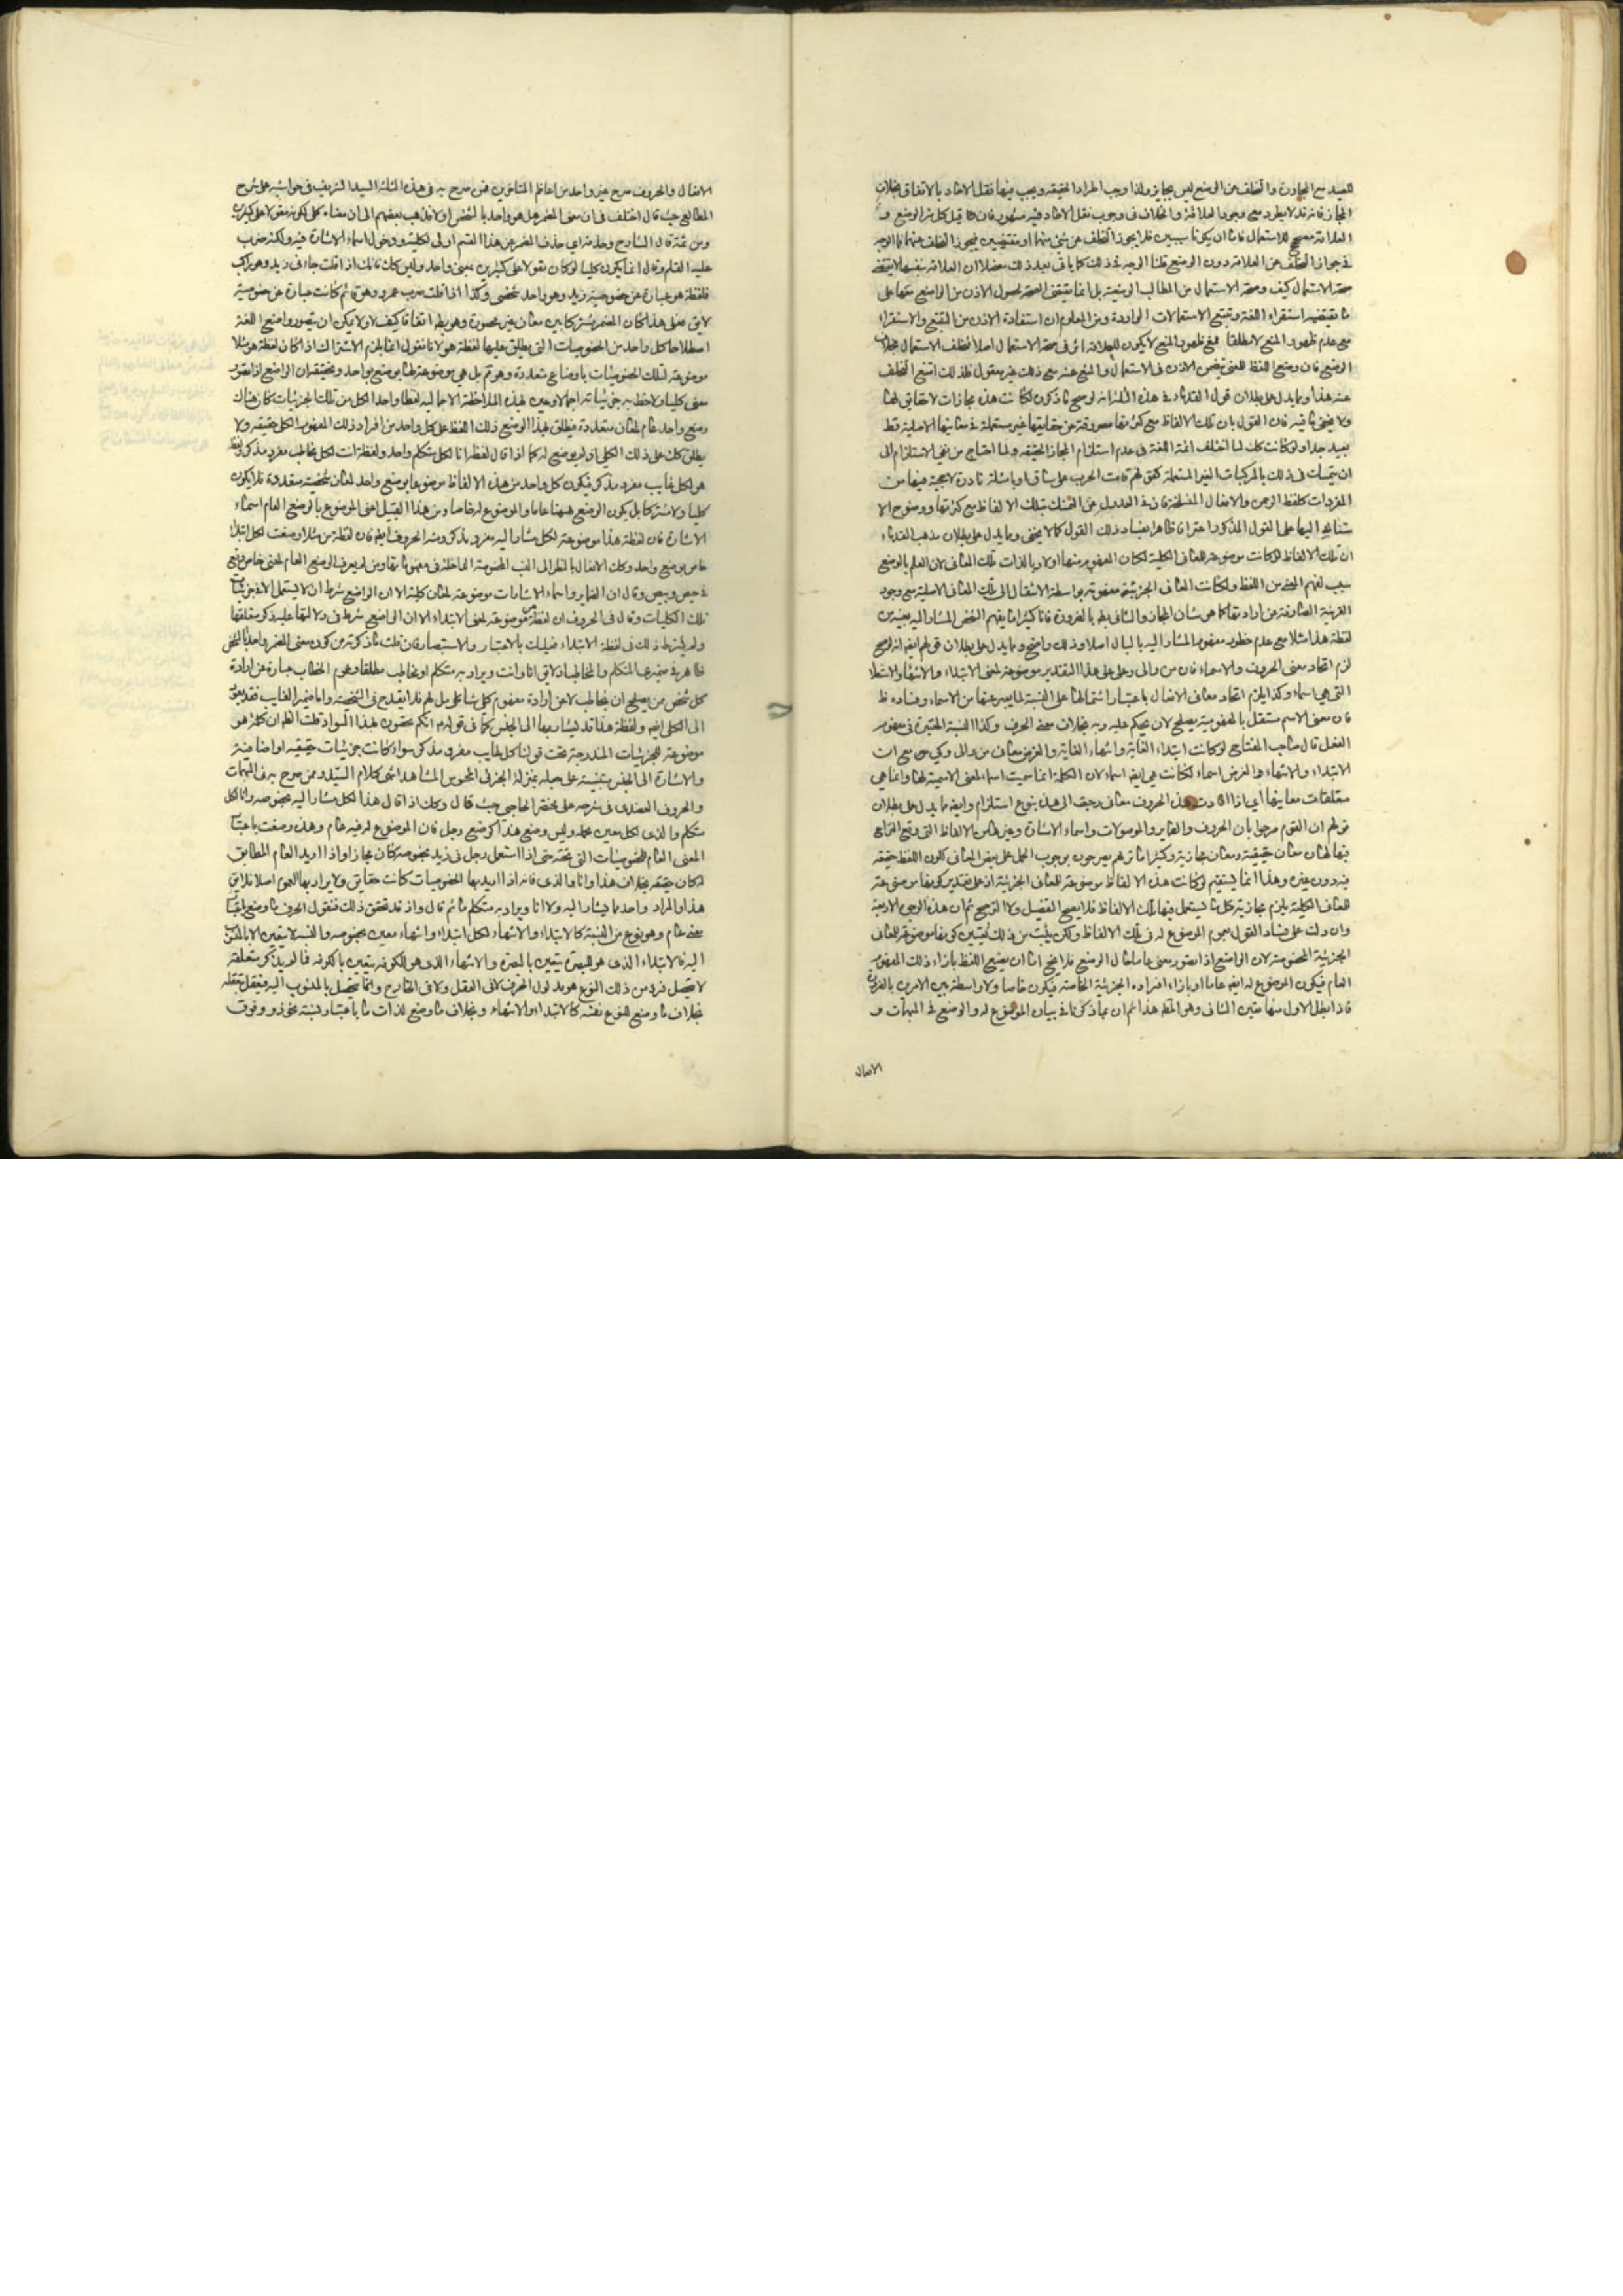 للصيد مع المجاورة والتخلف عن الوضع ليس بجايز ولذا وجب اطراد الحقيقة ويجب فيها نقل الاحاد بالاتفاق بخلاف
المجاز فانه قد لا يطرد مع وجود العلاقة والخلاف في وجوب نقل الاحاد فيه مشهور فان قيل كل من الوضع و
العلاقة مصحح للاستعمال فاما ان يكونا سببين فلا يجوز التخلف عن شئ منهما او مقتضيين فيجوز التخلف عنهما فما الوجه
في جواز التخلف عن العلاقة دون الوضع قلنا الوجه في ذلك كما ياتي بعيد ذلك مفصلا ان العلاقة بنفسها لا تقتضي
صحة الاستعمال كيف وصحة الاستعمال من المطالب الوضعية بل انما تقتضي الصحة بحصول الاذن من الواضع معها على
ما يقتضيه استقراء اللغة وتتبع الاستعمالات الواردة ومن المعلوم ان استفادة الاذن من التتبع والاستقراء
مع عدم ظهور المنع لا مطلقا فمع ظهور المنع لا يكون للعلاقة اثر في صحة الاستعمال اصلا فتخلف الاستعمال بخلاف
الوضع فان وضع اللفظ للمعنى يتضمن الاذن في الاستعمال والمنع عنه مع ذلك غير معقول فلذلك امتنع التخلف
عنه هذا ومما يدل على بطلان قول القدماء في هذه المسئلة انه لو صح ما ذكروه لكانت هذه مجازات لا حقايق لها
ولا يخفى ما فيه فان القول بان تلك الالفاظ مع كثرتها مصروفة عن حقايقها غير مستعملة في معانيها الاصلية قط
بعيد جدا ولو كانت كك لما اختلف ائمة اللغة في عدم استلزام المجاز الحقيقة ولما احتاج من نفى الاستلزام الى
ان يتمسك في ذلك بالمركبات الغير المستعملة كقولهم قامت الحرب على ساق او بامثلة نادرة لا يجية فيها من
المفردات كلفظ الرحمن والافعال المنسلخة فان في العدول عن التمسك بتلك الالفاظ مع كثرتها ووضوح الا
ستناد اليها على القول المذكور اعترافا ظاهرا بفساد ذلك القول كما لا يخفى ومما يدل على بطلان مذهب القدماء
ان تلك الالفاظ لو كانت موضوعة للمعاني الكلية لكان المفهوم منها اولا وبالذات تلك المعاني لان العلم بالوضع
سبب لفهم المعنى من اللفظ ولكانت المعاني الجزئية مفهومة بواسطة الانتقال الى تلك المعاني الاصلية مع وجود
القرينة الصارفة عن ارادتها كما هو شان المجاز والتالي بط بالضرورة فانا كثيرا ما يفهم الشخص المشار اليه بعينه من
لفظة هذا مثلا مع عدم خطور مفهوم المشار اليه بالبال اصلا وذلك واضح ومما يدل على بطلان قولهم ايضا انه لو صح
لزم اتحاد معنى الحروف والاسماء فان من والى وعلى على هذا التقدير موضوعة لمعنى الابتداء والانتهاء والاستعلا
التي هي اسماء وكذا يلزم اتحاد معاني الافعال باعتبار اشتمالها على النسبة لما يعبر عنها من الاسماء وفساده ظ
فان معنى الاسم مستقل بالمفهومية يصلح لان يحكم عليه وبه بخلاف معنى الحرف وكذا النسبة المعتبرة في مفهوم
الفعل قال صاحب المفتاح لو كانت ابتداء الغاية وانتهاء الغاية والغرض معاني من والى وكي مع ان
الابتداء والانتهاء والغرض اسماء لكانت هي ايضا اسماء لان الكلمة انما سميت اسما لمعنى الاسمية لها وانما هي
متعلقات معانيها اي اذا افادت هذه الحروف معاني رجعت الى هذه بنوع استلزام وايضا مما يدل على بطلان
قولهم ان القوم صرحوا بان الحروف والضماير والموصولات واسماء الاشارة وغيرها من الالفاظ التي وقع النزاع
فيها لها معان حقيقية ومعان مجازية وكثيرا ما تريهم يصرحون بوجوب الحمل على بعض المعاني لكون اللفظ حقيقة
فيه دون غيره وهذا انما يستقيم لو كانت هذه الالفاظ موضوعة للمعاني الجزئية اذ على تقدير كونها موضوعة
للمعاني الكلية يلزم مجازية كل ما يستعمل فيها تلك الالفاظ فلا يصح التفصيل ولا الترجيح ثم ان هذه الوجوه الاربعة
وان دلت على فساد القول بعموم الموضوع له في تلك الالفاظ ولكن يثبت من ذلك تعيين كونها موضوعة للمعاني
الجزئية المخصوصة لان الواضع اذا تصور معنى عاما حال الوضع فلا يخ اما ان يضع اللفظ بازاء ذلك المفهوم
العام فيكون الموضوع له ايضا عاما او بازاء افراده الجزئية الخاصة فيكون خاصا ولا واسطة بين الامرين بالفرض
فاذا بطل الاول منها تعين الثاني وهو المط هذا ثم ان ما ذكرنا في بيان الموضوع له والوضع في المبهمات و
الافعال
الافعال والحروف صرح غير واحد من اعاظم المتاخرين فمن صرح به في هذه المسئلة السيد الشريف في حواشيه على شرح
المطالع حيث قال اختلف في ان معنى المضمر هل هو واحد بالشخص او لا فذهب بعضهم الى ان معناه كلي لكونه مقولا على كثيرين
ومن ثمة قال الشارح وحذف اي حذف المضمر عن هذا القسم اولى لكليته ودخول اسماء الاشارة فيه ولكنه ضرب
عليه القلم وقال انما يكون كليا لو كان مقولا على كثيرين بمعنى واحد وليس كك فانك اذا قلت جاءني زيد وهو راكب
فلفظة هو عبارة عن خصوصية زيد وهو واحد شخصي وكذا اذا قلت ضرب عمرو وهو قائم كانت عبارة عن خصوصيته
لا يق فعلى هذا كان المضمر مشتركا بين معان غير محصورة وهو بط اتفاقا كيف لا ولا يمكن ان يتصور واضع اللغة
اصطلاحا كل واحد من الخصوصيات التي يطلق عليها لفظة هو لانا نقول انما يلزم الاشتراك اذا كان لفظة هو مثلا
موضوعة لتلك الخصوصيات باوضاع متعددة وهو مم بل هي موضوعة لها بوضع واحد وتحقيقه ان الواضع اذا تصور
معنى كليا ولاحظ به جزئياته اجمالا وعين بهذه الملاحظة الاجمالية لفظا واحدا لكل من تلك الجزئيات كان هناك
وضع واحد عام لمعان متعددة فيطلق بهذا الوضع ذلك اللفظ على كل واحد من افراد ذلك المفهوم الكلي حقيقة ولا
يطلق كك على ذلك الكلي اذ لم يوضع له كما اذا قال لفظ انا لكل متكلم واحد ولفظة انت لكل مخاطب مفرد مذكر ولفظ
هو لكل غايب مفرد مذكر فيكون كل واحد من هذه الالفاظ موضوعا بوضع واحد لمعان شخصية متعددة فلا يكون
كليا ولا مشتركا بل يكون الوضع ههنا عاما والموضوع له خاصا ومن هذا القبيل اعنى الموضوع بالوضع العام اسماء
الاشارة فان لفظة هذا موضوعة لكل مشار اليه مفرد مذكر ومنه الحروف ايضا فان لفظة من مثلا وضعت لكل ابتداء
خاص بوضع واحد وكك الافعال بالنظر الى النسب المخصوصة الداخلة في مفهوماتها ومن لم يعرف الوضع العام لمعنى خاص وقع
في حيص وبيص وقال ان الضماير واسماء الاشارات موضوعة لمعان كلية الا ان الواضع شرط ان لا يستعمل الا في جزئيات
تلك الكليات وقال في الحروف ان لفظة من موضوعة لمعنى الابتداء الا ان الواضع شرط في دلالتها عليه ذكر متعلقها
ولم يشترط ذلك في لفظة الابتداء فعليك بالاعتبار والاستبصار فان قلت ما ذكرته من كون معنى المضمر واحدا بالشخص
ظاهر في ضميري المتكلم والمخاطب اذ لا يق انا وانت ويراد به متكلم او مخاطب مطلقا وعموم الخطاب عبارة عن ارادة
كل شخص من يصلح ان يخاطب لا عن ارادة مفهوم كلي شامل لهم فلا يقدح في الشخصية واما ضمير الغايب فقد يعود
الى الكلي ايضا ولفظة هذا قد يشار بها الى الجنس كما في قولهم قلت اعلم ان كلمة هو
موضوعة للجزئيات المندرجة تحت قولنا كل غايب مفرد مذكر سواء كانت جزئيات حقيقية او اضافية
والاشارة الى الجنس مبنية على جعله بمنزلة الجزئي المحسوس المشاهد انتهى كلام السيد وممن صرح به في المبهمات
والحروف العضدي في شرحه على مختصر الحاجبي حيث قال وكك اذا قال هذا لكل مشار اليه بخصوصه وانا لكل
متكلم والذي لكل معين بجملة وليس وضع هذا كوضع رجل فان الموضوع له فيه عام وهذه وضعت باعتبار
المعنى العام للخصوصيات التي تحته حتى اذا استعمل رجل في زيد بخصوصه كان مجازا واذا اريد العام المطابق
لكان حقيقة بخلاف هذا وانا والذي فانه اذا اريد بها الخصوصيات كانت حقايق ولا يراد بها العموم اصلا فلا يق
هذا والمراد واحد مما يشار اليه ولا انا ويراد به متكلم ما ثم قال واذ قد تحقق ذلك فنقول الحرف ما وضع باعتبار
معنى عام وهو نوع من النسبة كالابتداء والانتهاء لكل ابتداء وانتهاء معين بخصوصه والنسبة لا تتعين الا بالمنسوب
اليه فالابتداء الذي هو للبصرة يتعين بالبصرة والانتهاء الذي هو للكوفة يتعين بالكوفة فما لم يذكر متعلقه
لا يتحصل فرد من ذلك النوع هو مدلول الحرف لا في العقل ولا في الخارج وانما يتحصل بالمنسوب اليه فيتعقل بتعقله
بخلاف ما وضع للنوع نفسه كالابتداء والانتهاء وبخلاف ما وضع لذات ما باعتبار نسبة نحو ذو وفوق